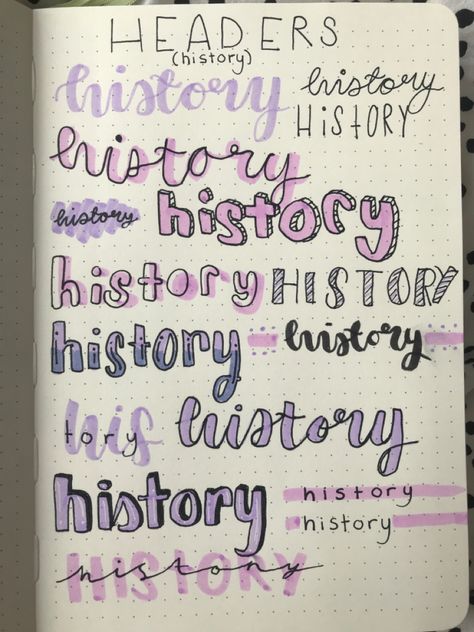 HEADERS
(history)
history history
HISTORY
history
history history
history HISTORY
history history
his history
tory
history history
history
HISTORY
history